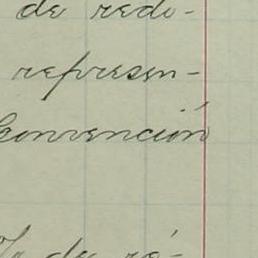 de redo-
represen-
Convención
de ró-